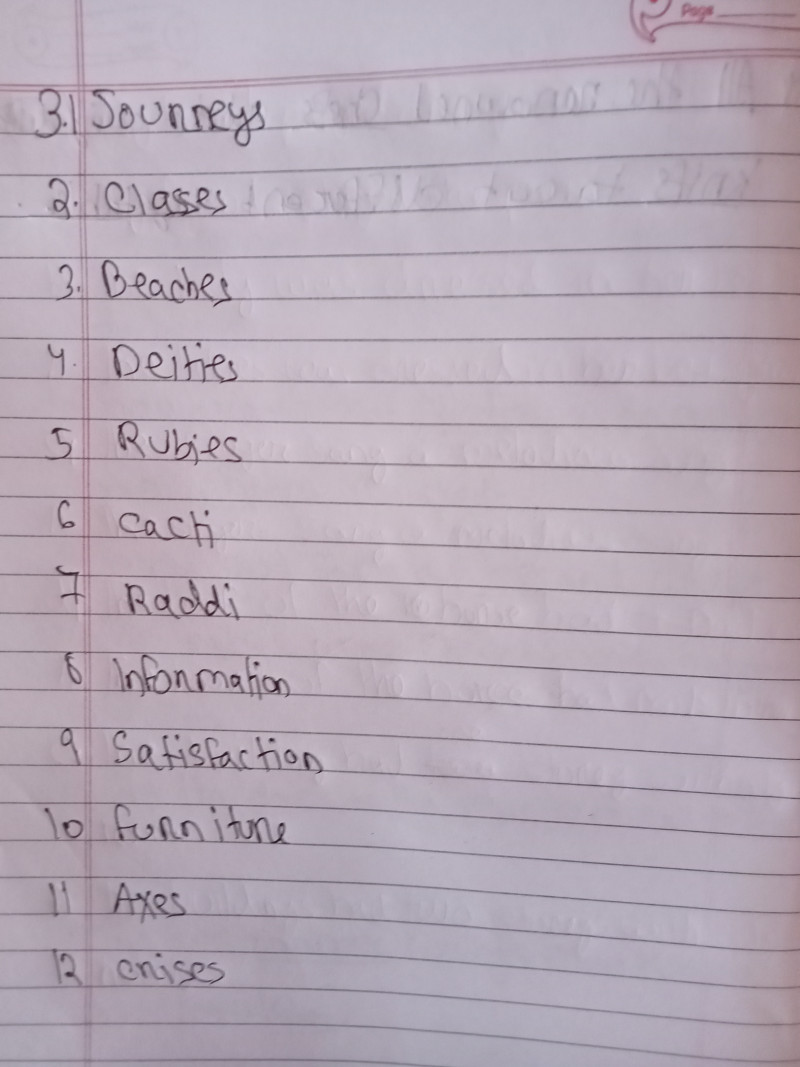 Page
3.1 Journeys
2. Classes
3. Beaches
4. Deities
5 Rubies
6 Cacti
7 Raddi
8 Information
9 Satisfaction
10 furniture
11 Axes
12 crises